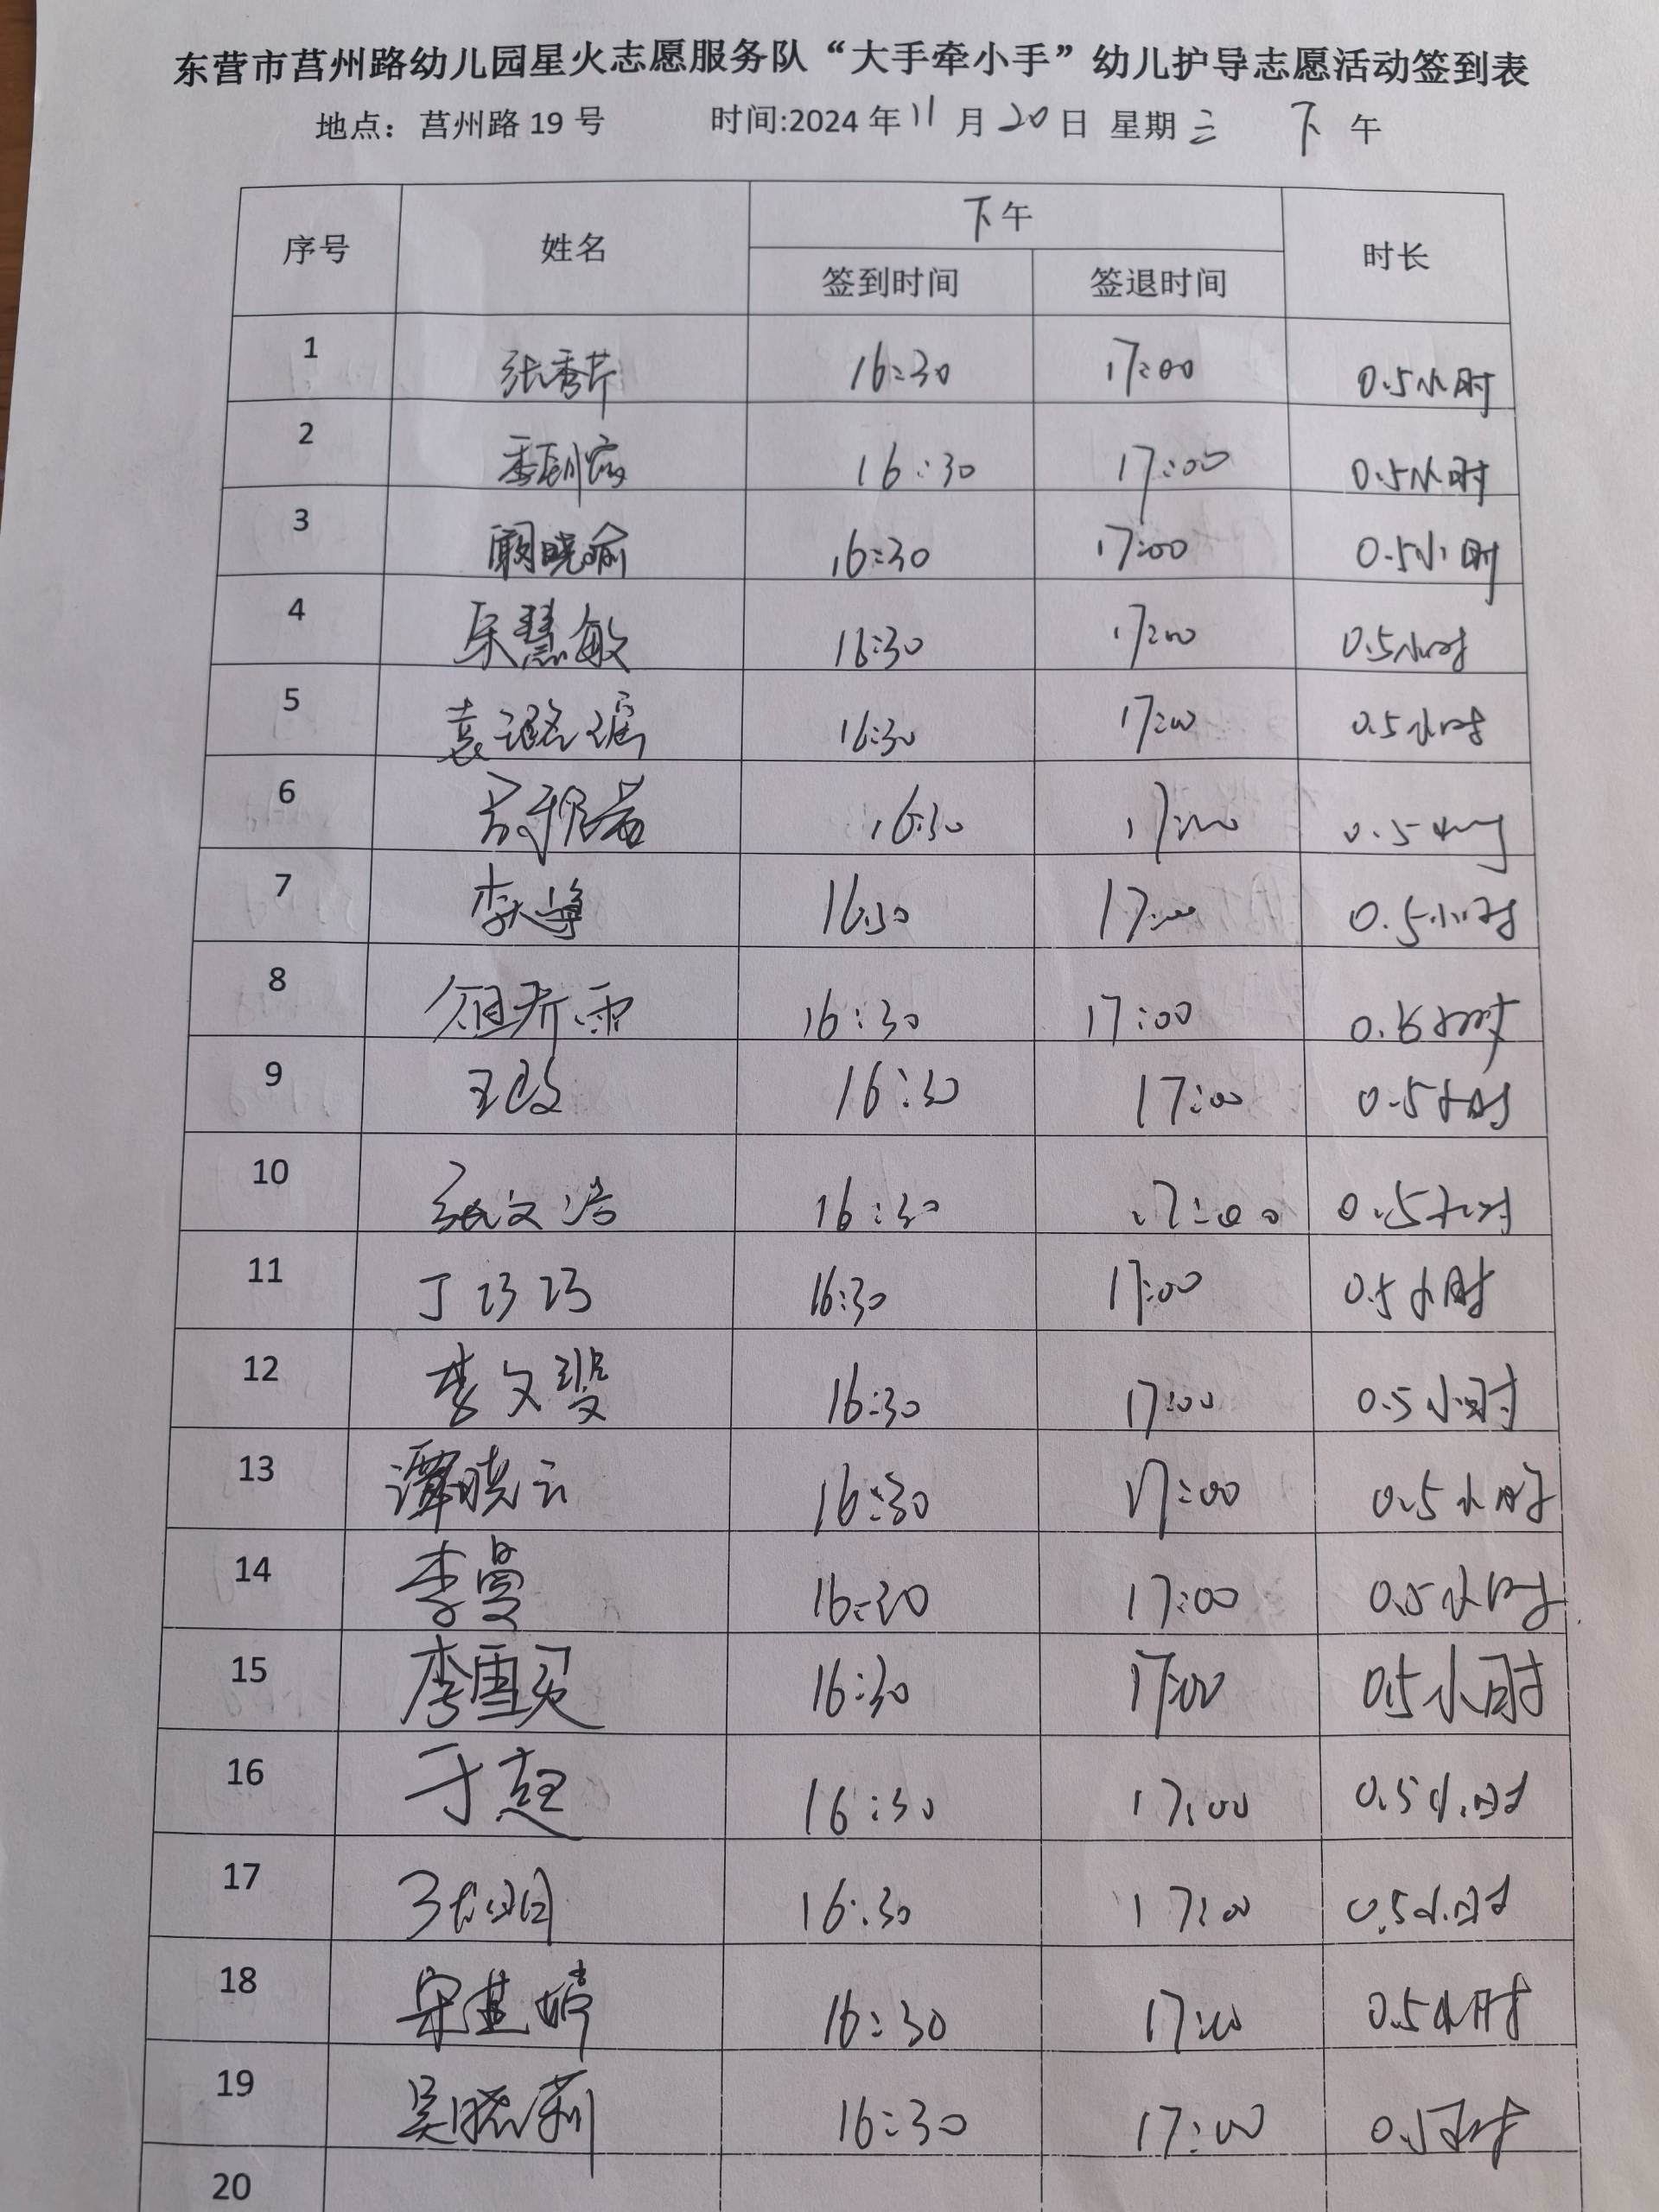 东营市莒州路幼儿园星火志愿服务队“大手牵小手”幼儿护导志愿活动签到表
地点：莒州路 19 号 时间:2024 年 11 月 20 日 星期 三 下 午
序号 姓名 下午 时长
签到时间 签退时间
1 张秀芹 16:30 17:00 0.5小时
2 16:30 17:00 0.5小时
3 顾晓瑜 16:30 17:00 0.5小时
4 宋慧敏 16:30 17:00 0.5小时
5 袁璐瑶 16:30 17:00 0.5小时
6 16:30 17:00 0.5小时
7 李 16:30 17:00 0.5小时
8 16:30 17:00 小时
9 王 16:30 17:00 0.5小时
10 张文浩 16:30 17:00 0.5小时
11 丁巧巧 16:30 17:00 0.5小时
12 李文 16:30 17:00 0.5小时
13 谭晓云 16:30 17:00 0.5小时
14 李曼 16:30 17:00 0.5小时
15 李雪 16:30 17:00 0.5小时
16 于 16:30 17:00 0.5小时
17 16:30 17:00 0.5小时
18 宋 婷 16:30 17:00 0.5小时
19 吴晓莉 16:30 17:00 0.5小时
20